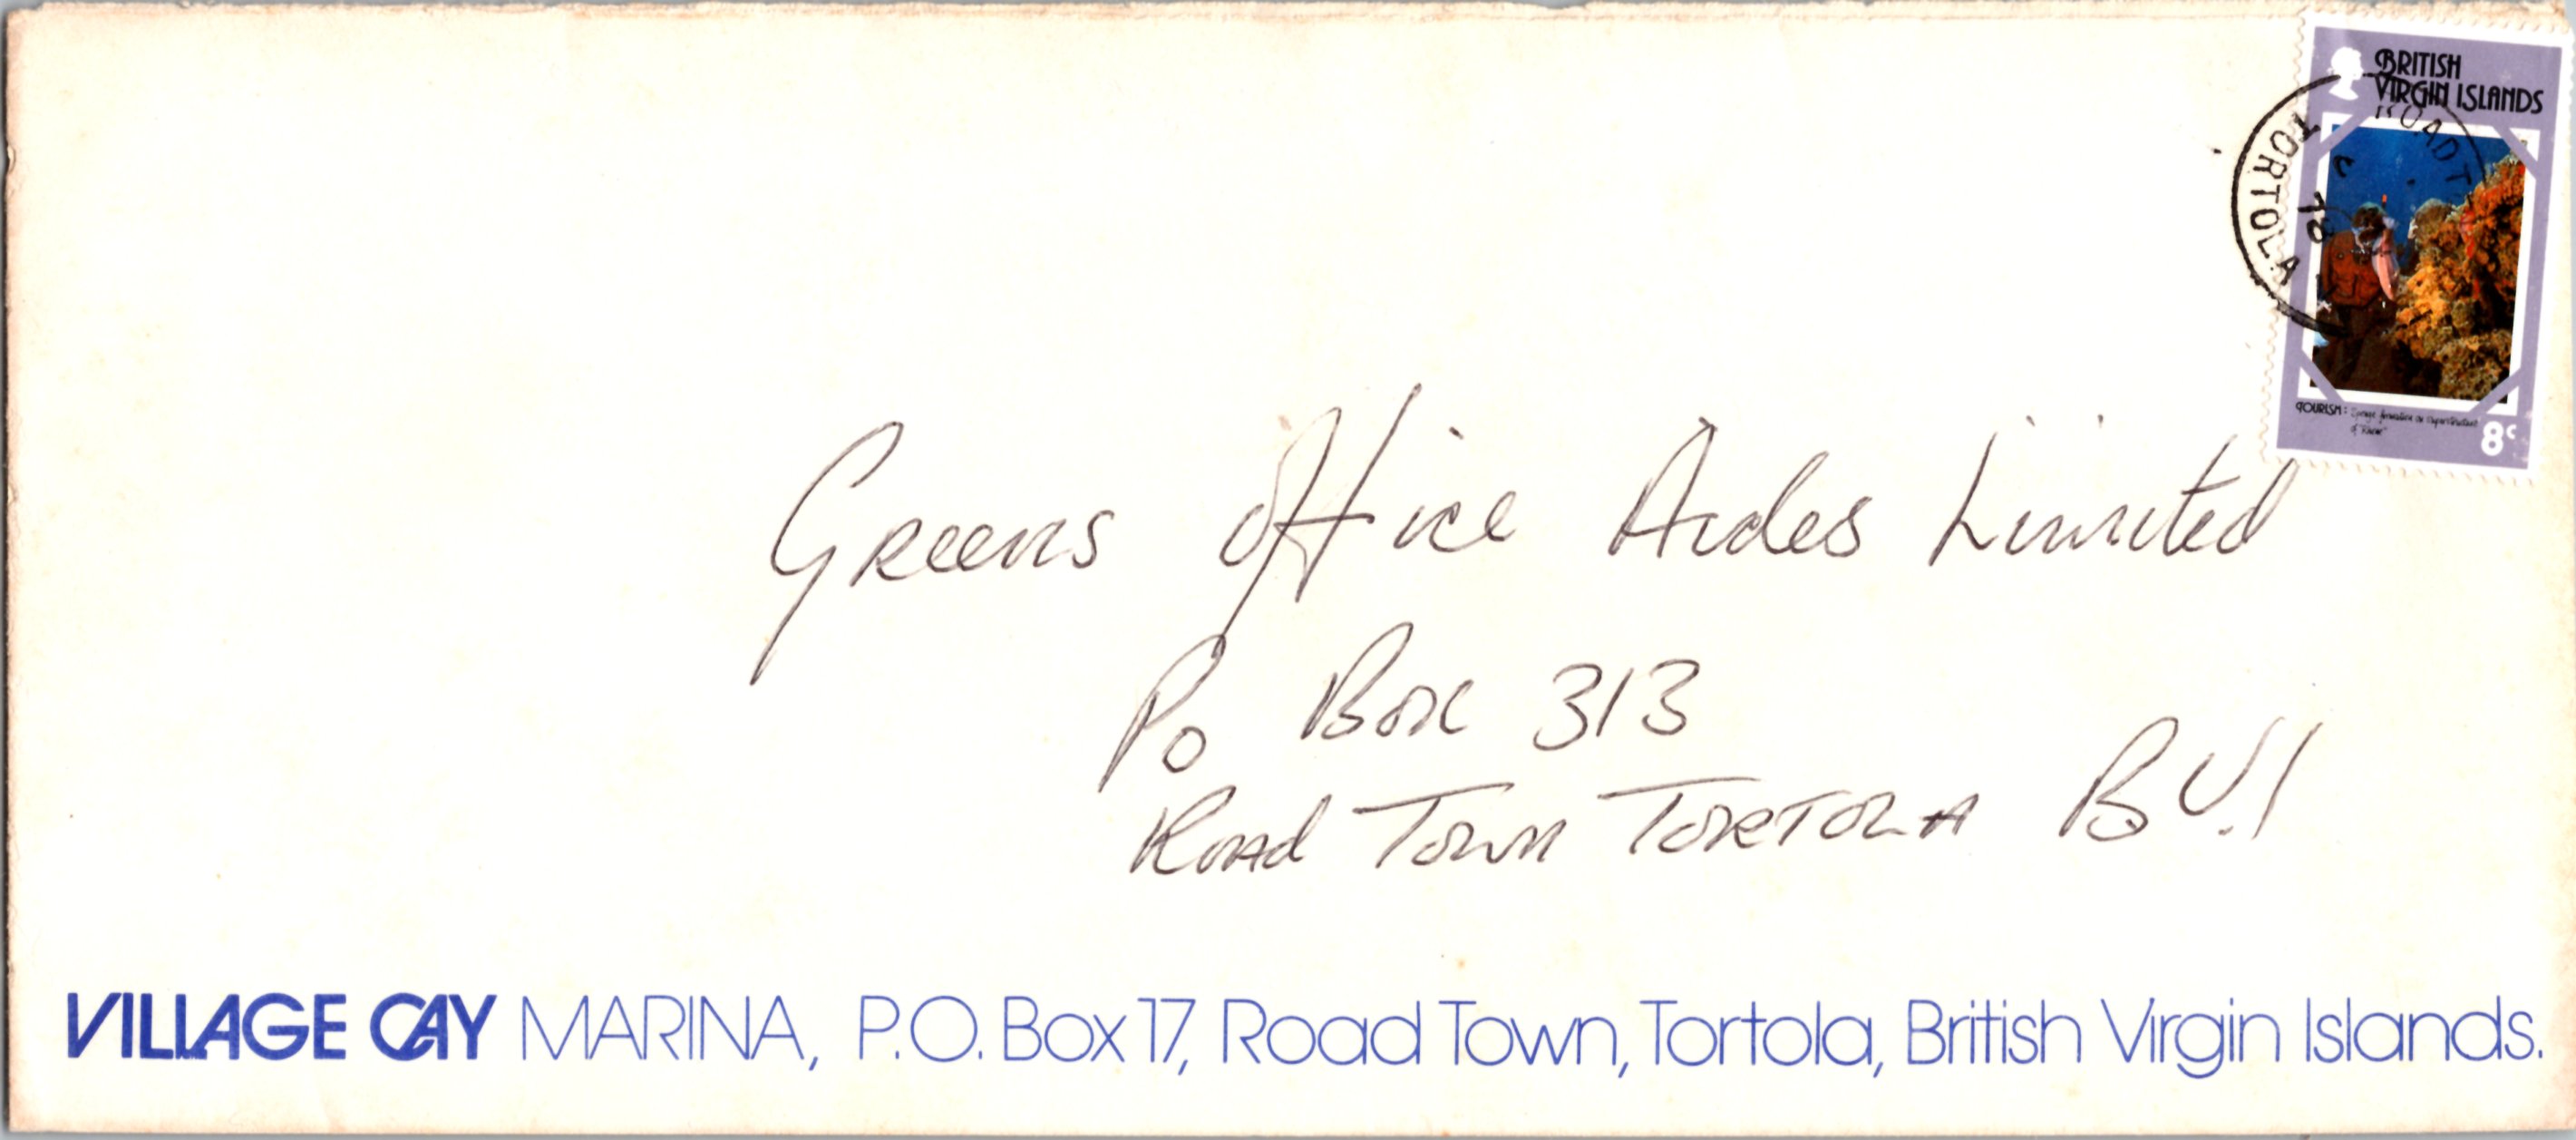 BRITISH
VIRGIN ISLANDS
TORTOLA
TOURISM:
of "Rhone"
8c
Greens Office Aides Limited
Po Box 313
Road Town TORTOLA B.V.I
VILLAGE CAY MARINA, P.O. Box 17, Road Town, Tortola, British Virgin Islands.